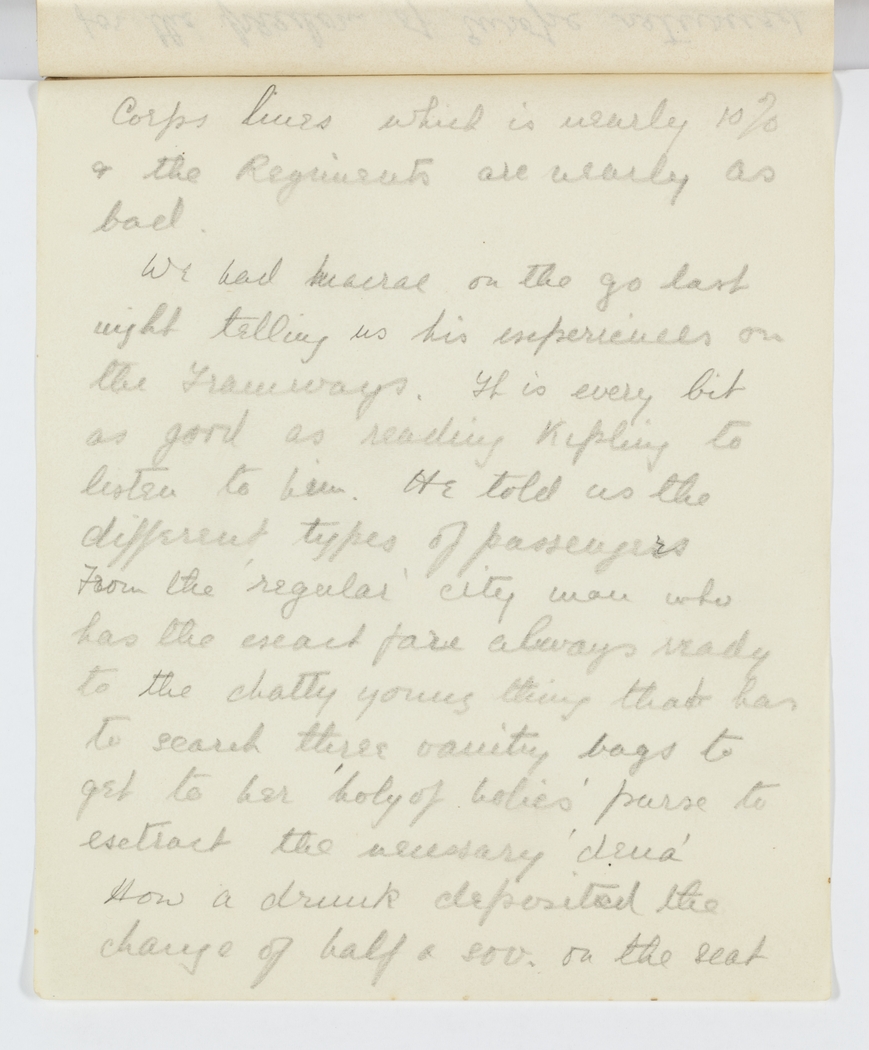 Corps lines which is nearly 10%
& the Regiments are nearly as
bad.
We had Macrae on the go last
night telling us his experiences on
the Tramways. It is every bit
as good as reading Kipling to
listen to him. He told us the
different types of passengers
From the 'regular' city man who
has the exact fare always ready
to the chatty young thing that has
to search three vanity bags to
get to her 'holy of holies' purse to
extract the necessary 'dena'
How a drunk deposited the
change of half a sov. on the seat